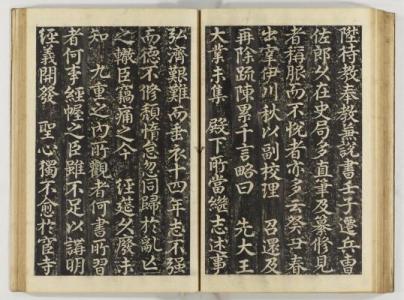 陞侍教奉教無說書壬子遷兵曹
佐郎久在史局多直筆及纂修見
者稱服而不悅者亦多云癸丑春
出宰伊川秋以副校理 召還及
再除疏陳累千言略曰 先大王
大業未集 殿下所當繼志述事
弘濟艱難而垂衣十四年志不強
而德不修頹惰怠忽同歸於亂亡
之轍臣竊痛之今 經筵久廢未
知 九重之內所觀者何書所習
者何事經幄之臣雖不足以講明
經義開發 聖心獨不愈於宦寺